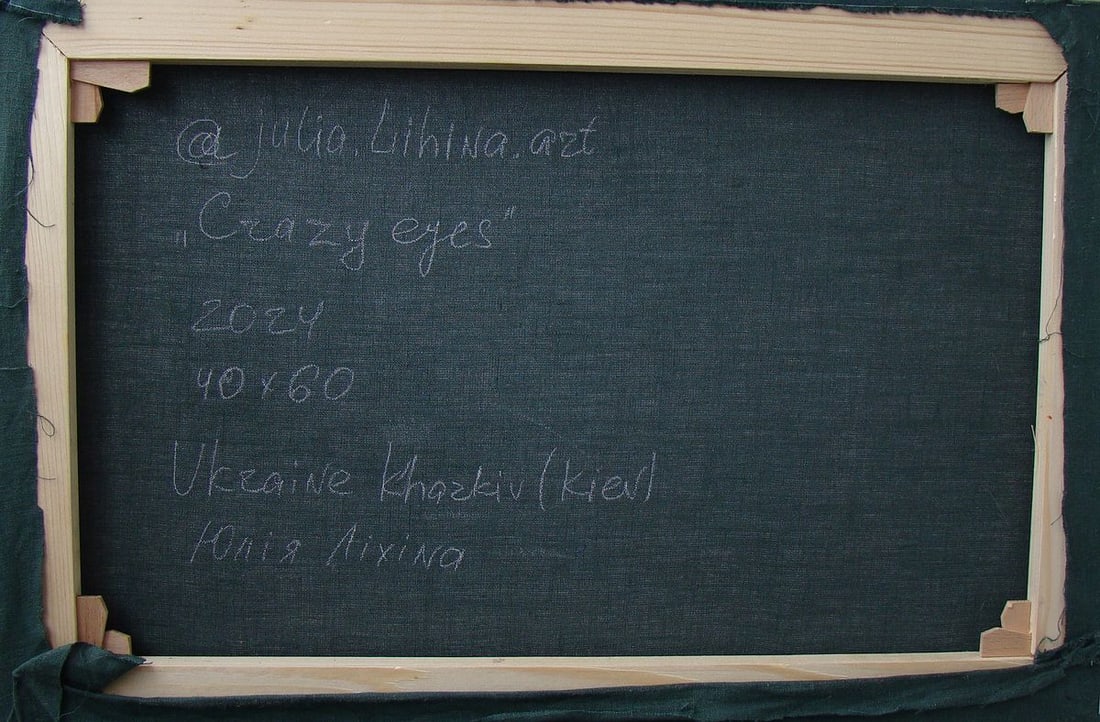 @julia.Lihina.art
„Crazy eyes"
2024
40x60
Ukraine Kharkiv (Kiev)
Юлія Ліхіна